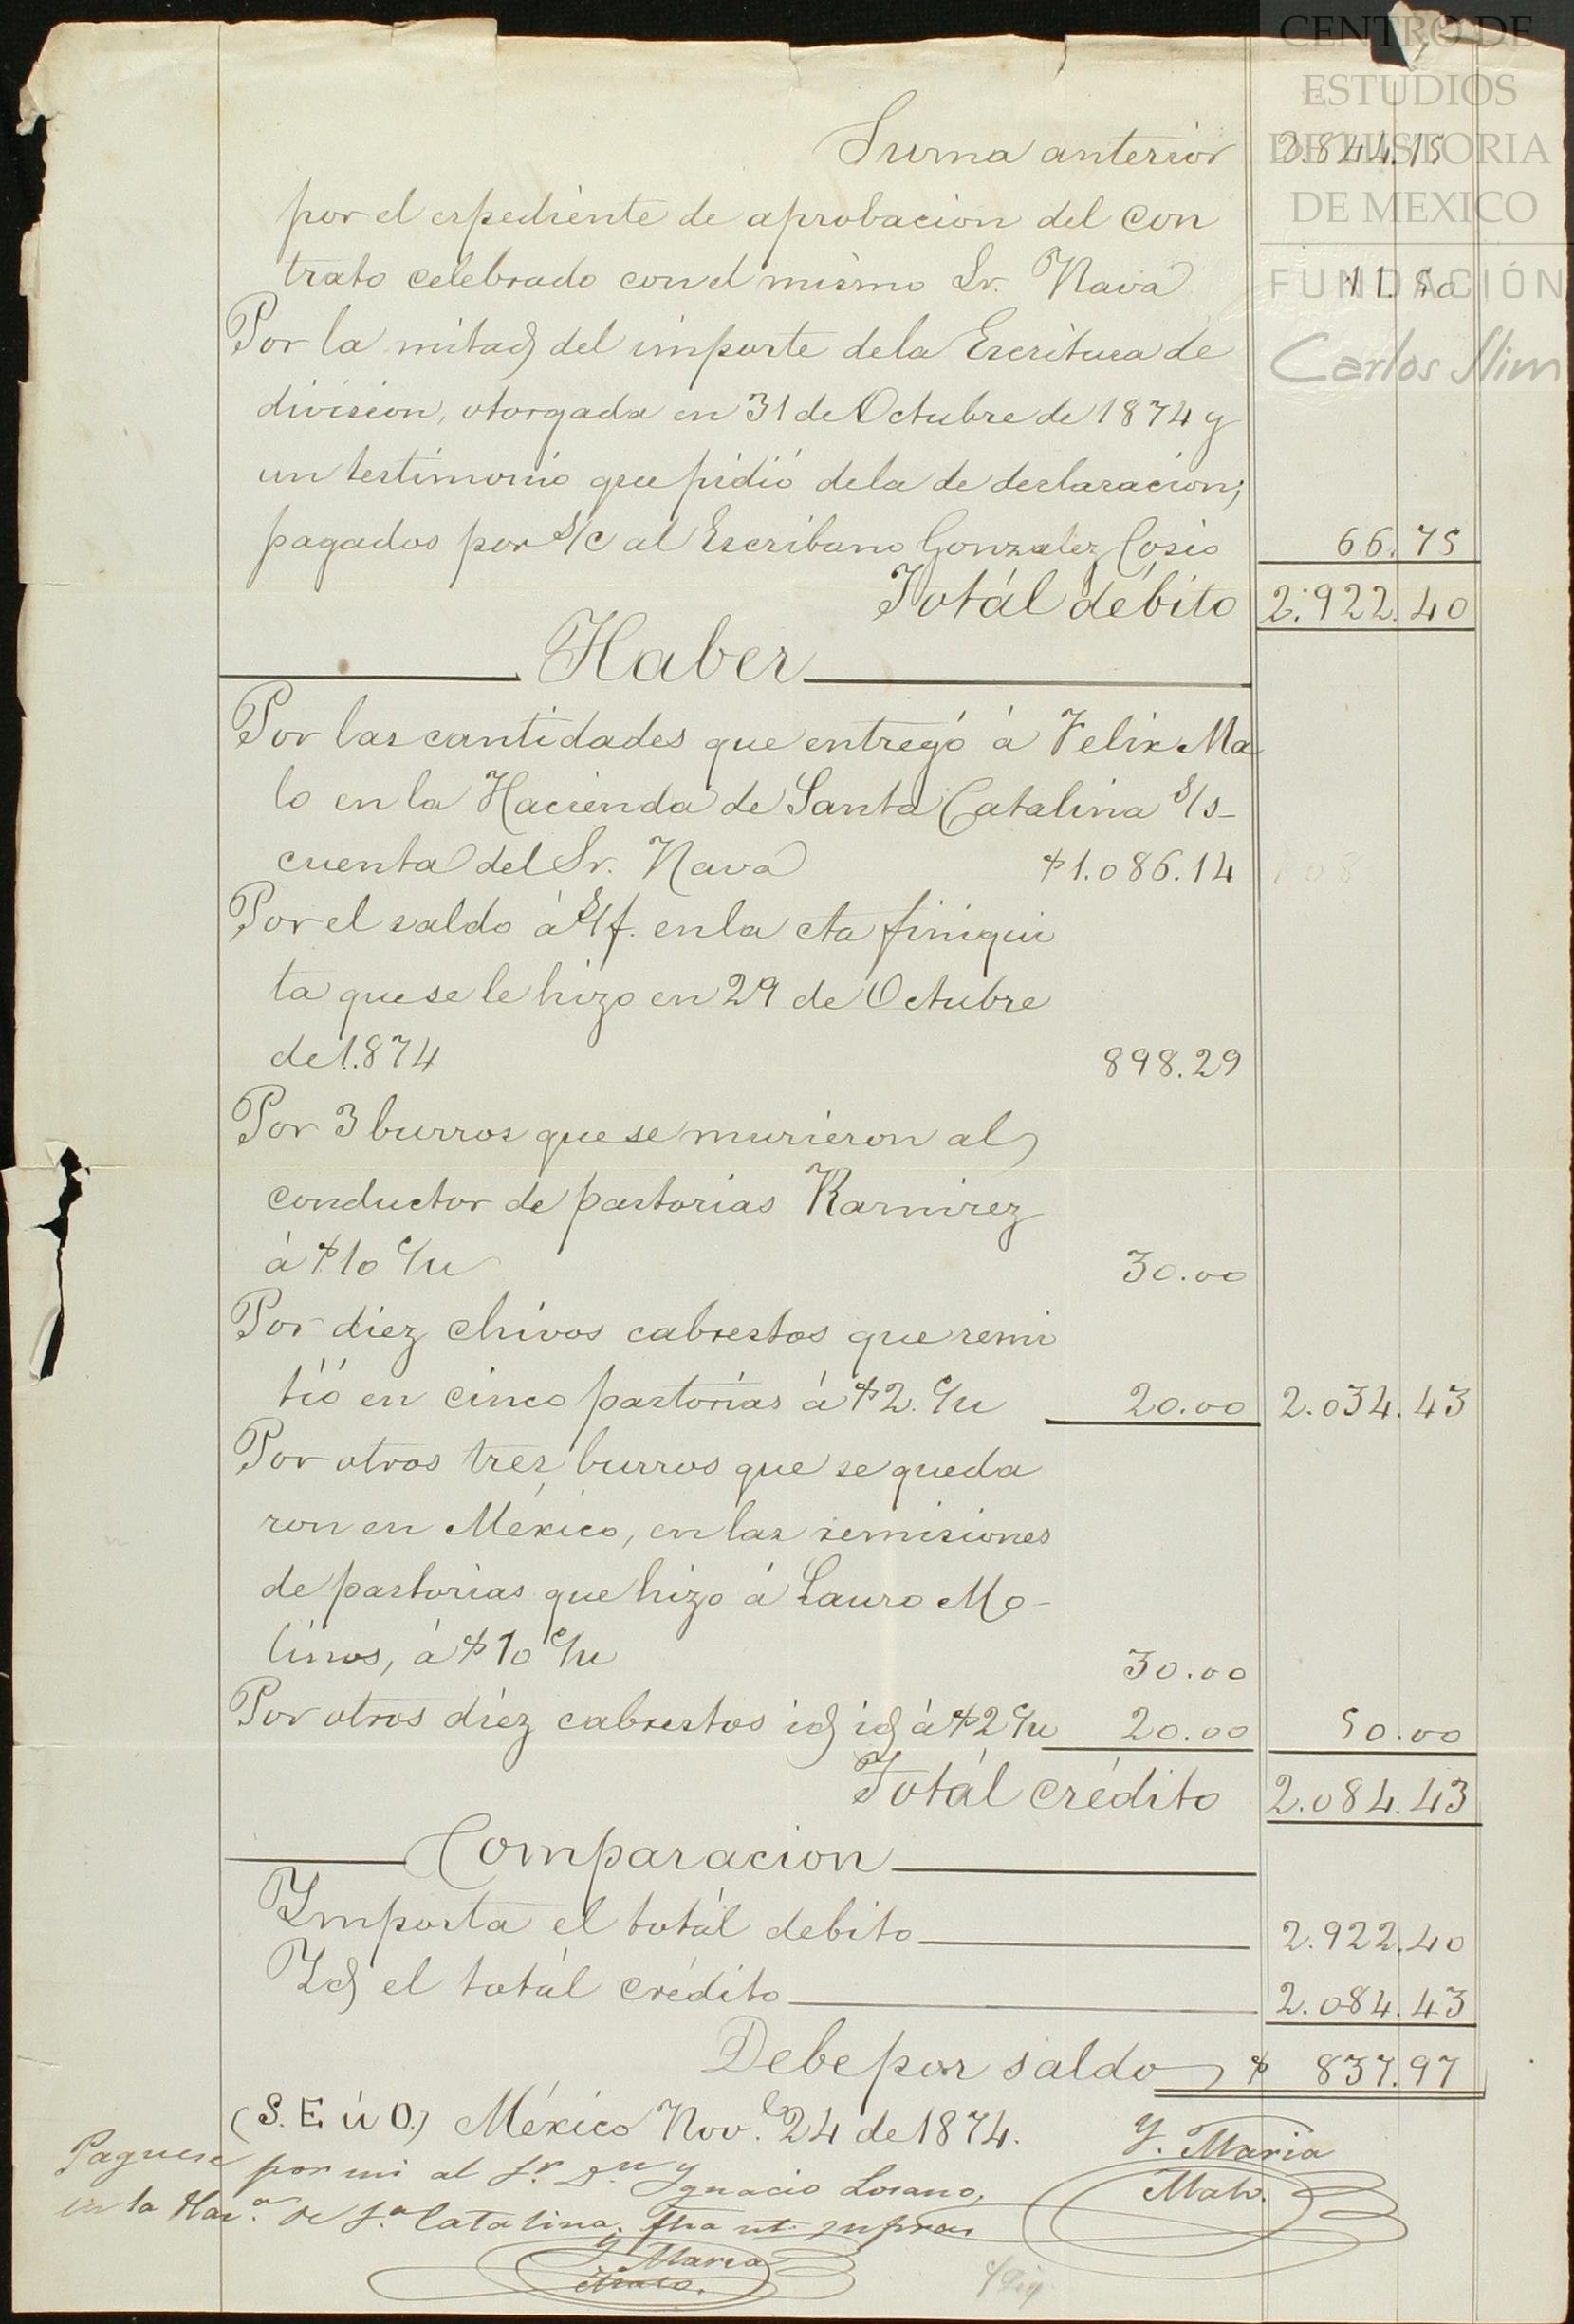 CENTRO DE
ESTUDIOS
DE HISTORIA
DE MEXICO
FUNDACIÓN
Carlos Slim
Suma anterior 2.844.15
por el espediente de aprobacion del con
trato celebrado con el mismo Sr. Nava 11.50
Por la mitad del importe dela Escritura de
division, otorgada en 31 de Octubre de 1874 y
un testimonio que pidió dela de declaracion;
pagados por s/c al Escribano Gonzalez Cosio 66.75
Totál débito 2.922.40
Haber
Por las cantidades que entregó á Felix Ma
lo en la Hacienda de Santa Catalina s/s-
cuenta del Sr. Nava $1.086.14
Por el saldo á s/f. en la cta finiqui
ta que se le hizo en 29 de Octubre
de 1.874 898.29
Por 3 burros que se murieron al
conductor de pastorias Ramirez
á $10 c/u 30.00
Por diez chivos cabrestos que remi
tió en cinco pastorias á $2. c/u 20.00 2.034.43
Por otros tres burros que se queda
ron en México, en las remisiones
de pastorias que hizo á Lauro Mo-
linos, á $10 c/u 30.00
Por otros diez cabrestos id id á $2 c/u 20.00 50.00
Totál crédito 2.084.43
Comparacion
Importa el totál debito 2.922.40
Id el totál crédito 2.084.43
Debe por saldo $ 837.97
(S. E. ú O.) México Nov.e 24 de 1874.
Y. Maria
Malo.
Paguese por mi al Sr. Dn Ygnacio Losano,
en la Haz.a de S.a Catalina. Fha ut supra
Y. Maria
Malo.